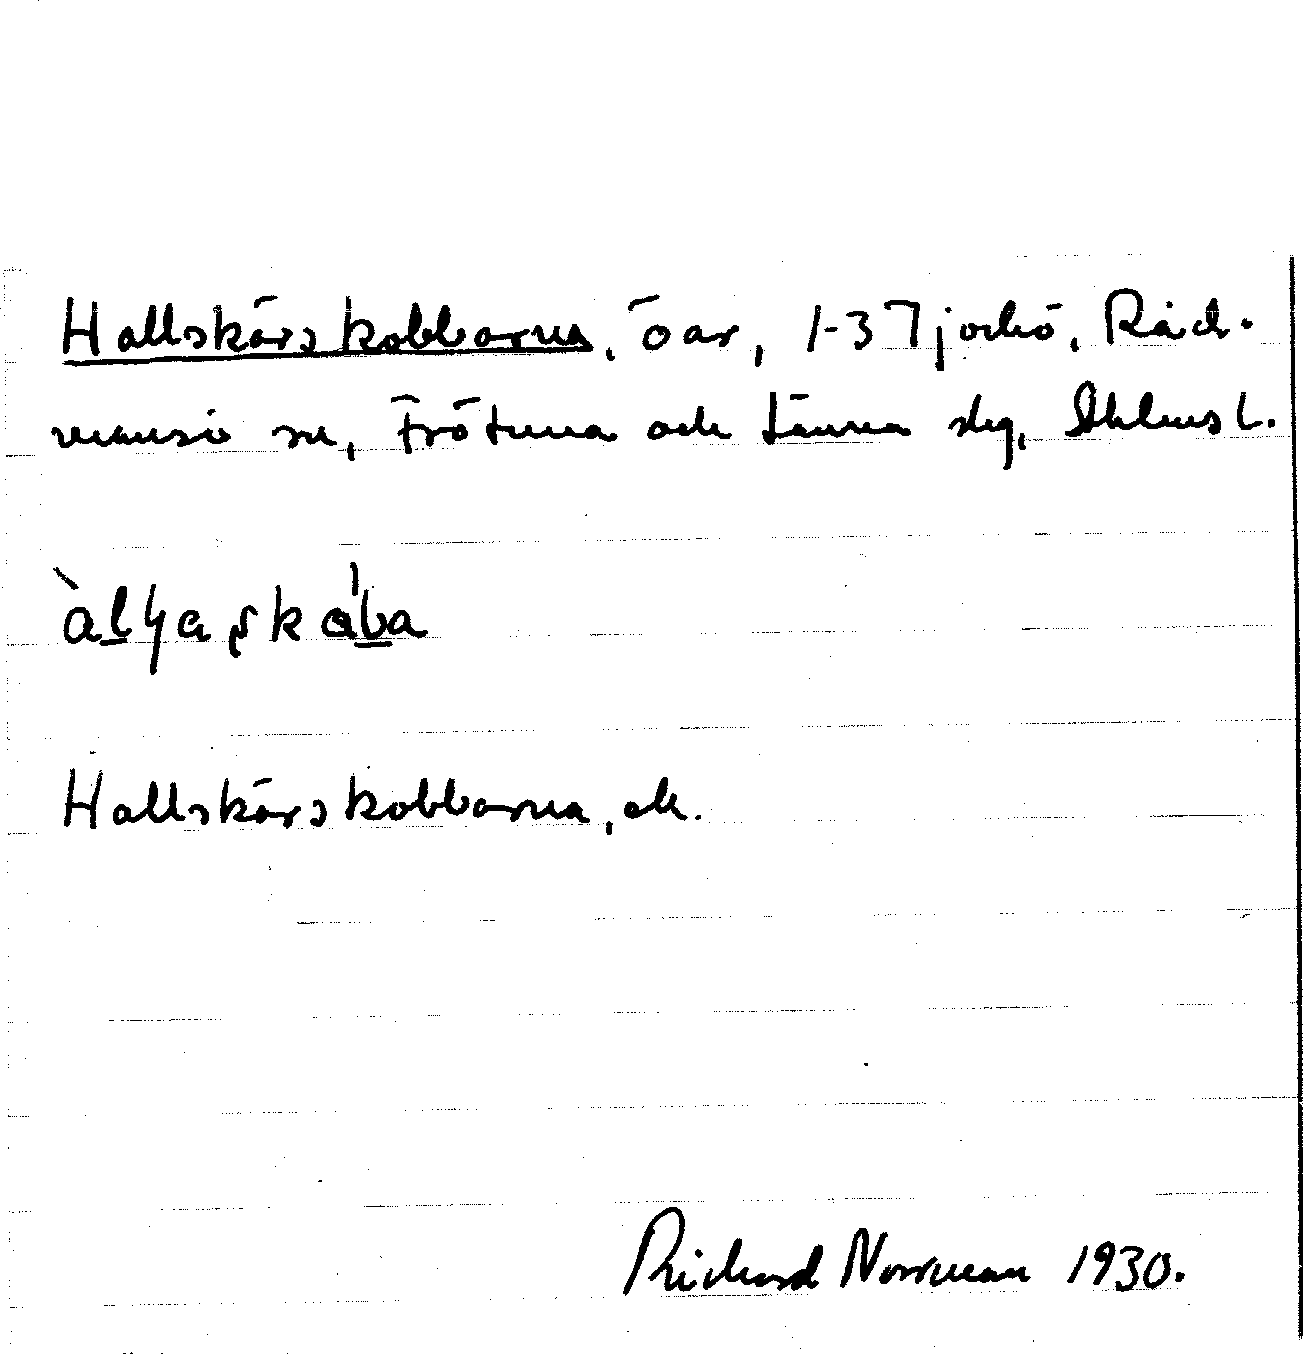 Hallskärskobbarna, öar, 1-3 Tjockö, Råd-
mansö sn, Frötuna och Länna slg, Stklms l.
Hallskärskobbarna, ek.
Richard Norrman 1930.